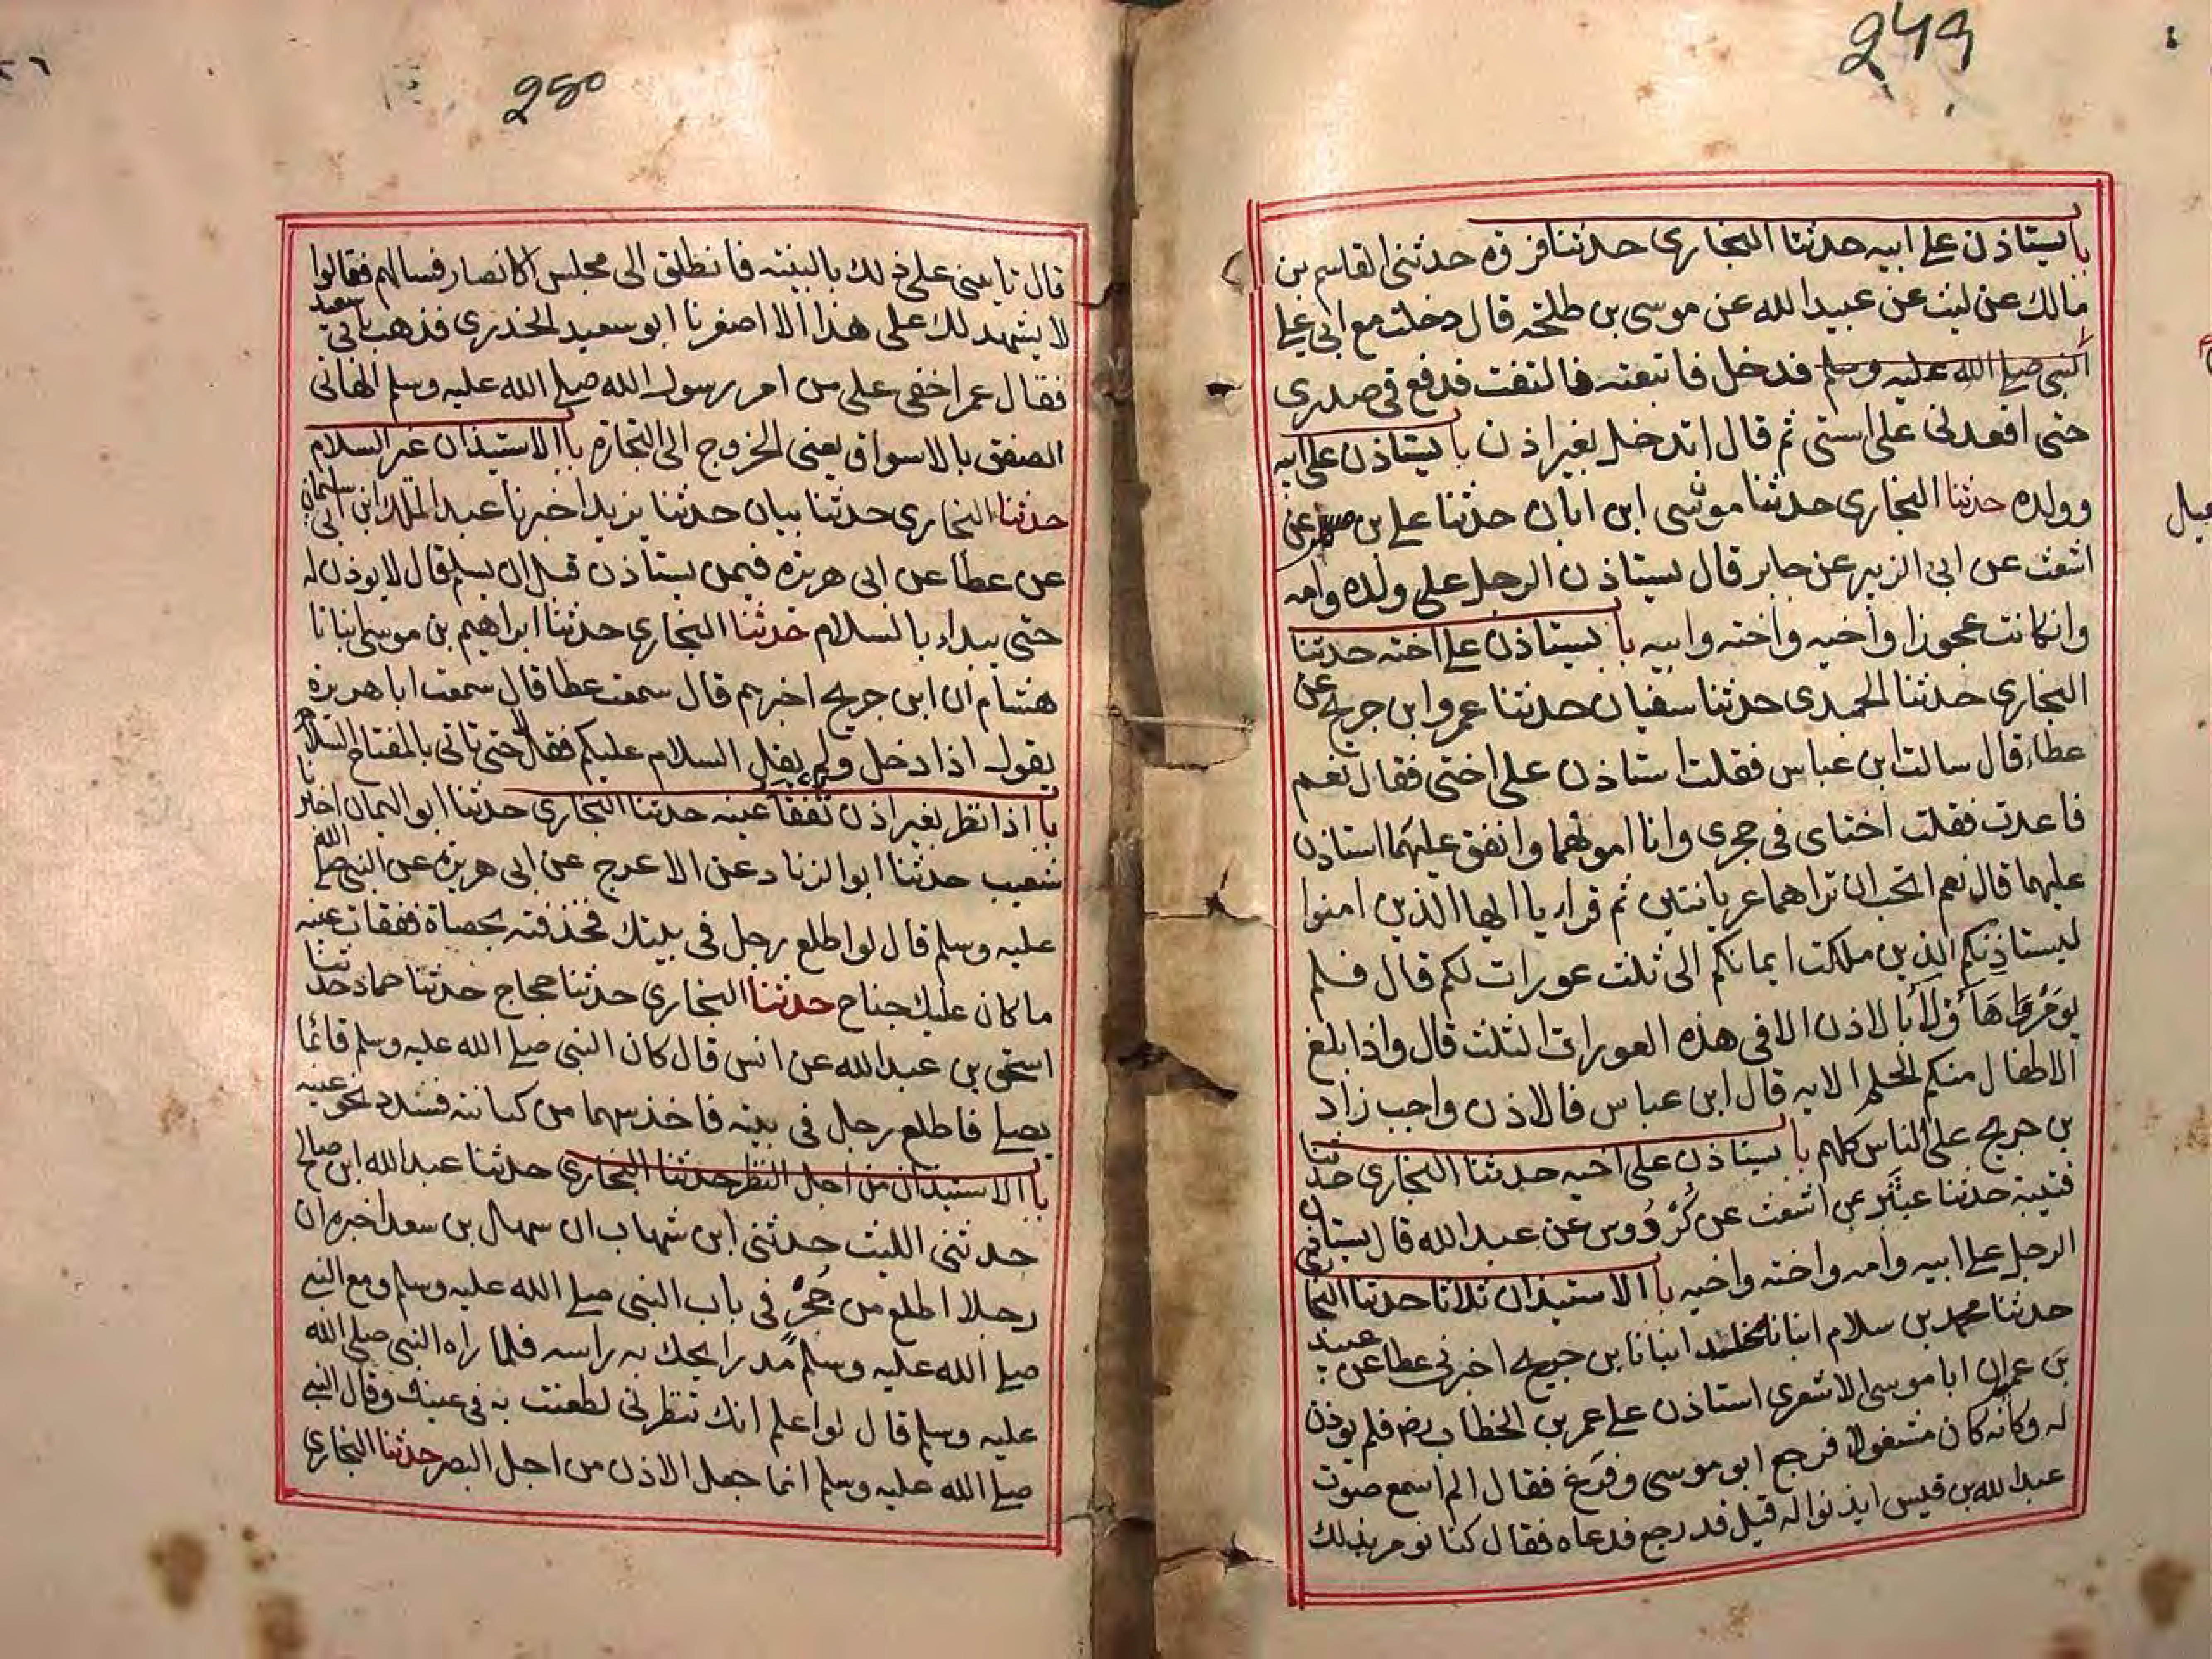 249
باب يستاذن على ابيه حدثنا البخاري حدثنا فروه حدثني القاسم بن
مالك عن ليث عن عبيد الله عن موسى بن طلحه قال دخلت مع ابي على
النبي صلى الله عليه وسلم فدخل فاتبعته فالتفت فدفع في صدري
حتى اقعدني على استي ثم قال اتدخل بغير اذن باب يستاذن على ابيه
وولده حدثنا البخاري حدثنا موسى ابن ابان حدثنا على بن مسهر عن
اشعث عن ابي الزبير عن جابر قال يستاذن الرجل على ولده وامه
وان كانت عجوزا واخيه واخته وابيه باب يستاذن على اخته حدثنا
البخاري حدثنا الحميدى حدثنا سفيان حدثنا عمرو ابن جريج عن
عطاء قال سالت ابن عباس فقلت استاذن على اختى فقال نعم
فاعدت فقلت اختاى فى حجرى وانا امونهما وانفق عليهما استاذن
عليهما قال نعم اتحب ان تراهما عريانتين ثم قراء يا ايها الذين امنوا
ليستاذنكم الذين ملكت ايمانكم الى ثلث عورات لكم قال فلم
يومر هاؤلاء بالاذن الا فى هذه العورات الثلث قال واذا بلغ
الاطفال منكم الحلم الايه قال ابن عباس فالاذن واجب زاد
بن جريج على الناس كلهم باب يستاذن على اخيه حدثنا البخاري حدثنا
قتيبة حدثنا عبثر عن اشعث عن كردوس عن عبد الله قال يستاذن
الرجل على ابيه وامه واخته واخيه باب الاستيذان ثلاثا حدثنا البخاري
حدثنا محمد بن سلام انبانا مخلد انبانا بن جريج اخبرنى عطا عن عبيد
بن عمر ان ابا موسى الاشعرى استاذن على عمر بن الخطاب رض فلم يوذن
له وكانه كان مشغولا فرجع ابو موسى وفرغ فقال الم اسمع صوت
عبد الله بن قيس ايذنوا له قيل قد رجع فدعاه فقال كنا نومر بذلك
250
قال تاتيني على ذلك بالبينه فانطلق الى مجلس الانصار فسالهم فقالوا
لا يشهد لك على هذا الا اصغرنا ابو سعيد الخدرى فذهب بابي سعيد
فقال عمر اخفى على من امر رسول الله صلى الله عليه وسلم الهاني
الصفق بالاسواق يعنى الخروج الى التجاره باب الاستيذان غير السلام
حدثنا البخاري حدثنا بيان حدثنا يزيد اخبرنا عبد الملك ابن ابي سليمان
عن عطا عن ابى هريره فيمن يستاذن قبل ان يسلم قال لا يوذن له
حتى يبداء بالسلام حدثنا البخاري حدثنا ابراهيم بن موسى انبانا
هشام ان ابن جريج اخبرهم قال سمعت عطا قال سمعت ابا هريره
يقول اذا دخل ولم يقل السلام عليكم فقل لا حتى تاتى بالمفتاح السلام
باب اذا نظر بغير اذن تفقأ عينه حدثنا البخاري حدثنا ابو اليمان اخبرنا
شعيب حدثنا ابو الزناد عن الاعرج عن ابى هريره عن النبى صلى الله
عليه وسلم قال لو اطلع رجل فى بيتك فخذفته بحصاة ففقات عينه
ما كان عليك جناح حدثنا البخاري حدثنا حجاج حدثنا حماد حدثنا
اسحق بن عبد الله عن انس قال كان النبى صلى الله عليه وسلم قائما
يصلى فاطلع رجل فى بيته فاخذ سهما من كنانته فسدد نحو عينيه
باب الاستيذان من اجل النظر حدثنا البخاري حدثنا عبد الله ابن صالح
حدثنى الليث حدثنى ابن شهاب ان سهل بن سعد اخبره ان
رجلا اطلع من جحر فى باب النبى صلى الله عليه وسلم ومع النبى
صلى الله عليه وسلم مدرا يحك به راسه فلما راه النبى صلى الله
عليه وسلم قال لو اعلم انك تنظرنى لطعنت به فى عينك وقال النبى
صلى الله عليه وسلم انما جعل الاذن من اجل البصر حدثنا البخاري